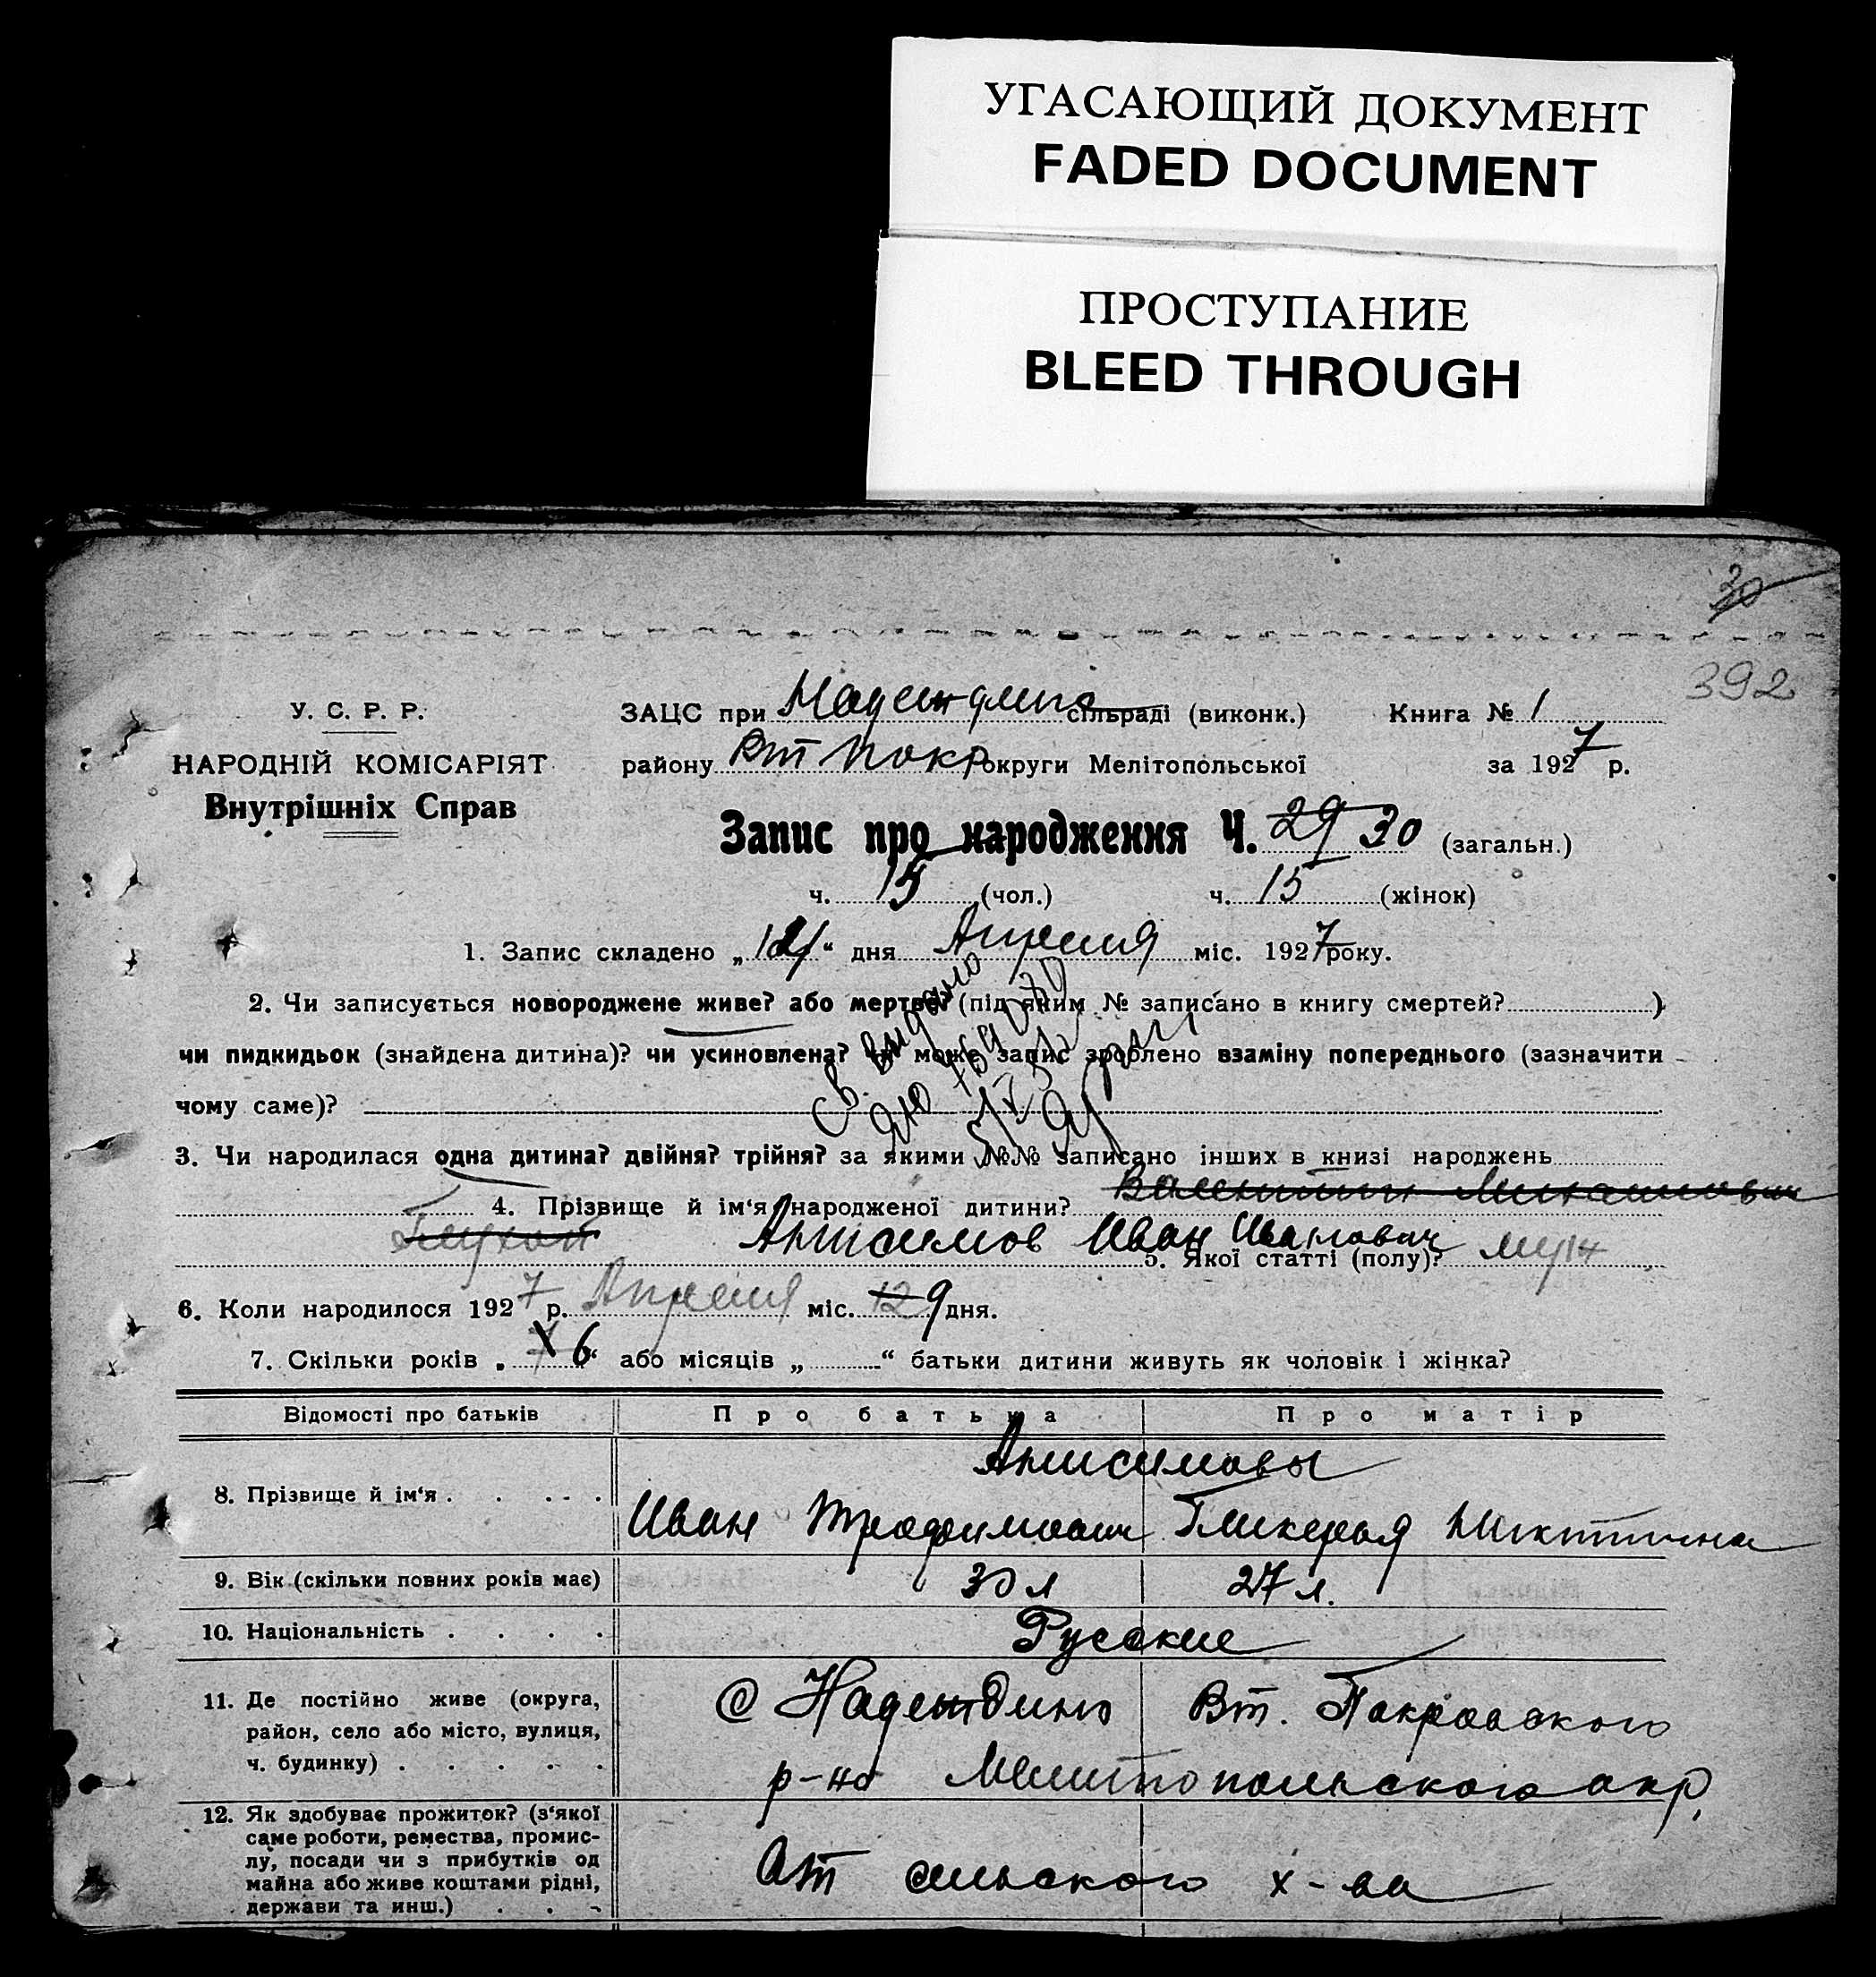 УГАСАЮЩИЙ ДОКУМЕНТ
FADED DOCUMENT
ПРОСТУПАНИЕ
BLEED THROUGH
30
392
У. С. Р. Р.
НАРОДНІЙ КОМІСАРІЯТ
Внутрішніх Справ
ЗАЦС при Надеждино сільраді (виконк.) Книга № 1
району Вт Покр округи Мелітопольської за 1927 р.
Запис про народження Ч. 29 30 (загальн.)
ч. 15 (чол.) ч. 15 (жінок)
1. Запис складено „ “ дня Апреля міс. 1927 року.
2. Чи записується новороджене живе? або мертве? (під яким № записано в книгу смертей? )
чи пидкидьок (знайдена дитина)? чи усиновлена? чи може запис зроблено взаміну попереднього (зазначити
чому саме)?
Св. выдано
3. Чи народилася одна дитина? двійня? трійня? за якими №№ записано інших в книзі народжень
4. Прізвище й ім‘я народженої дитини? Валентин Михайлович
Глухой Анисимов Иван Иванович 5. Якої статті (полу)? муж
6. Коли народилося 1927 р. Апреля міс. 12 9 дня.
7. Скільки років „ 6 “ або місяців „ “ батьки дитини живуть як чоловік і жінка?
Відомості про батьків Про батька Про матір
Анисимовы
8. Прізвище й ім‘я Иван Трофимович Гликерья Никитична
9. Вік (скільки повних років має) 30 л 27 л.
10. Національність Русские
11. Де постійно живе (округа, район, село або місто, вулиця, ч. будинку)
с Надеждино Вт. Покровского
р-на Мелитопольского окр.
12. Як здобуває прожиток? (з‘якої
саме роботи, ремества, промис-
лу, посади чи з прибутків од
майна або живе коштами рідні,
держави та инш.)
От сельского х-ва